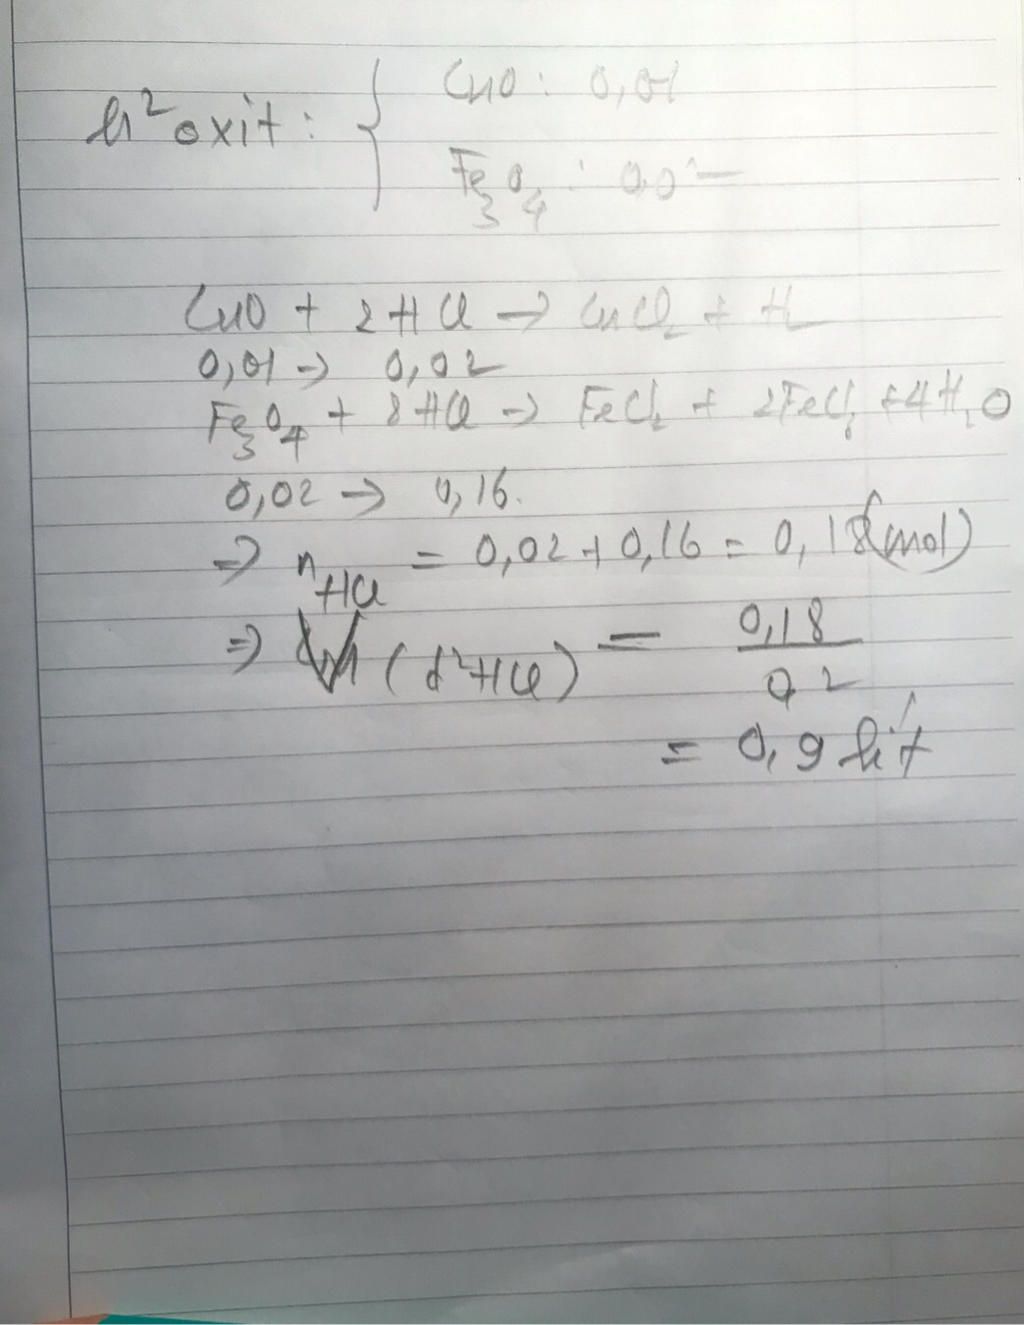 h² oxit: { CuO: 0,01
Fe3O4: 0,0
CuO + 2HCl → CuCl2 + H
0,01 → 0,02
Fe3O4 + 8HCl → FeCl2 + 2FeCl3 + 4H2O
0,02 → 0,16.
⇒ nHCl = 0,02 + 0,16 = 0,18 (mol)
⇒ V (d²HCl) = 0,18 / 0,2
= 0,9 lít